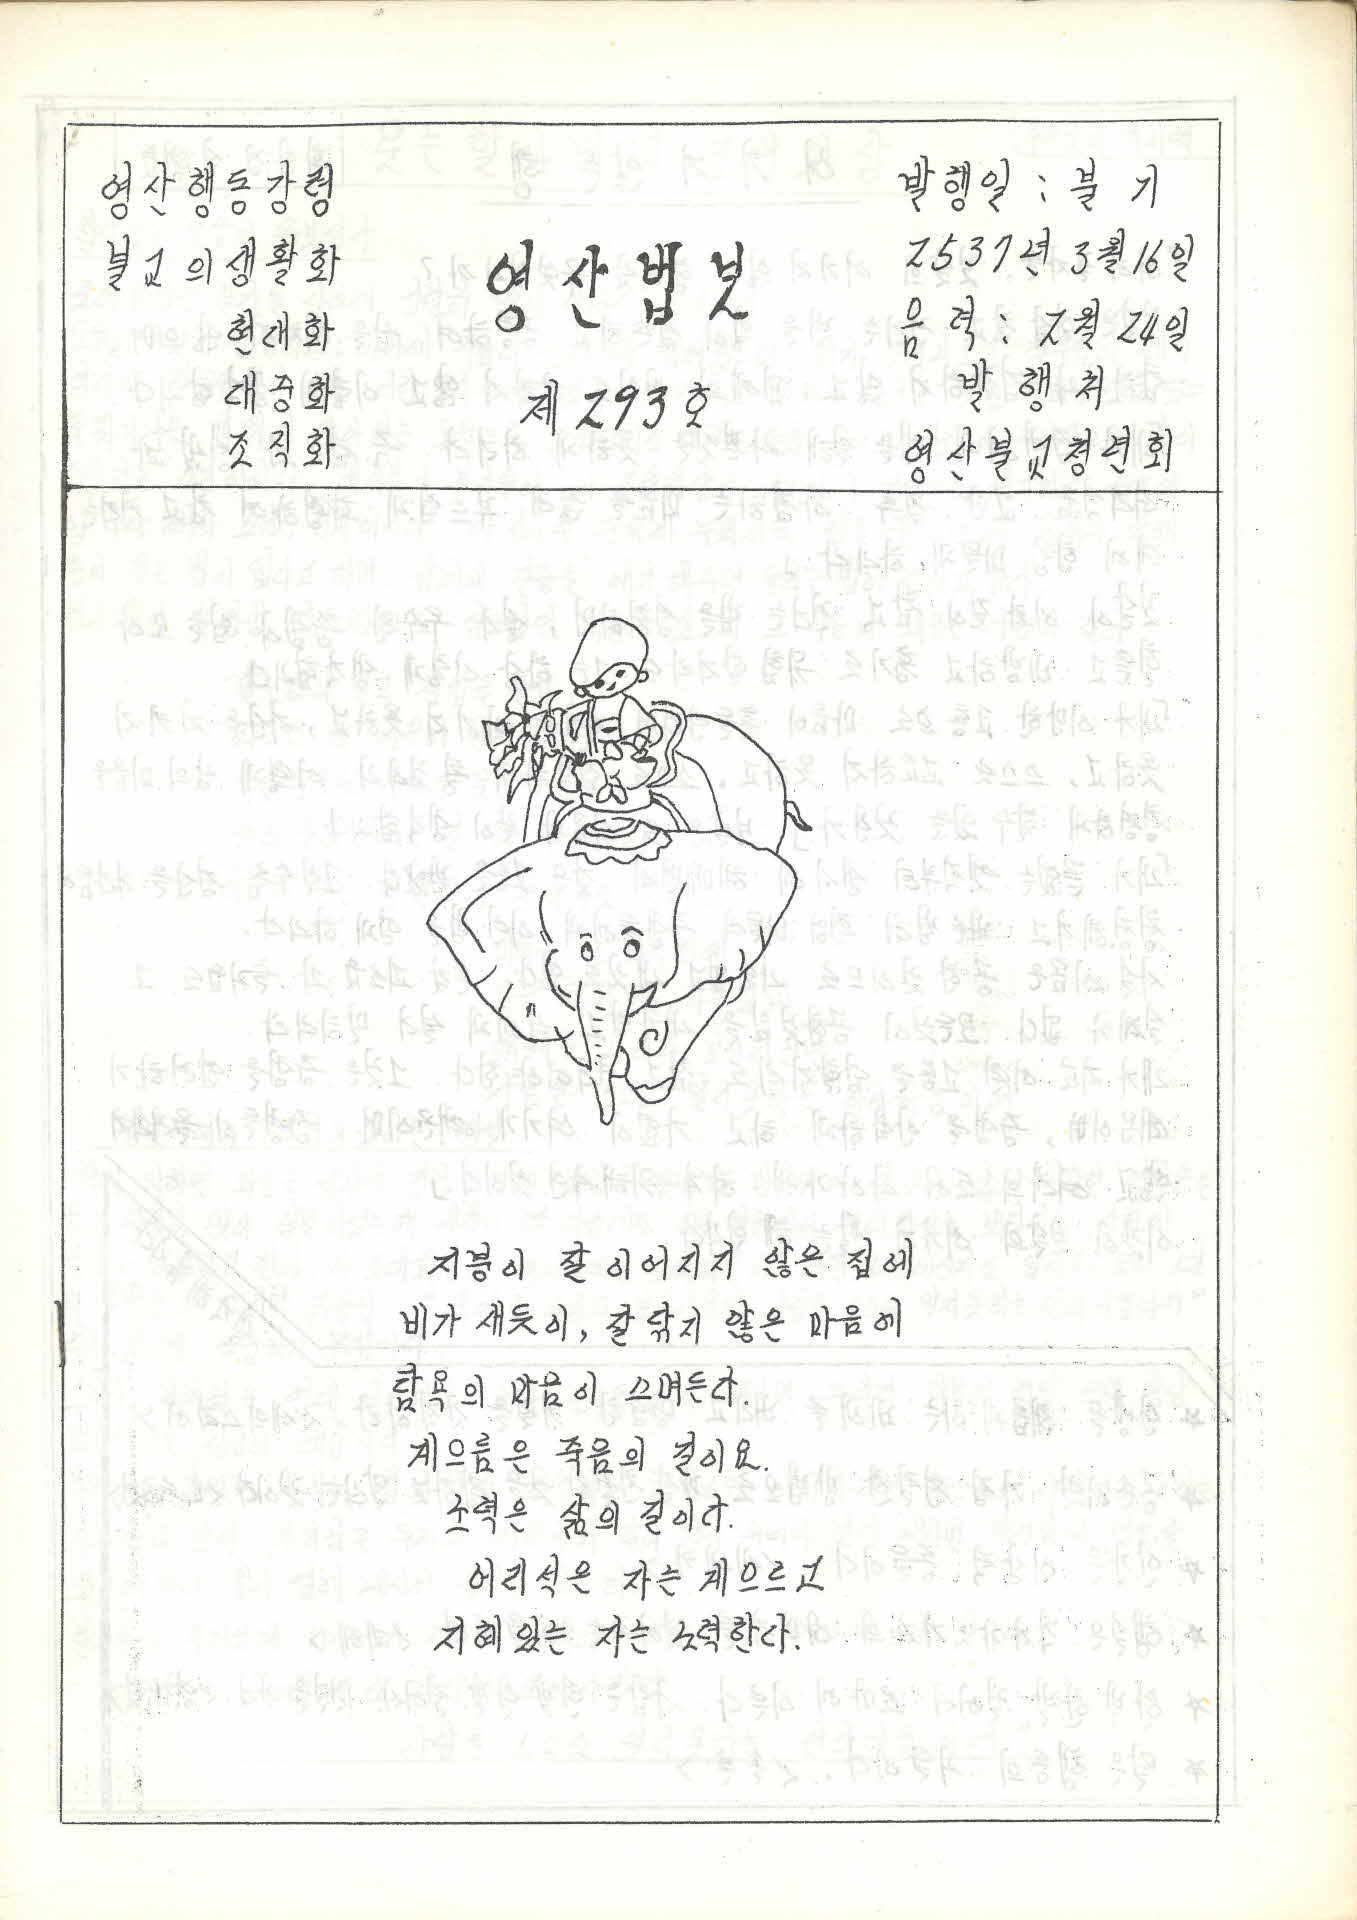 영산행동강령
불교의생활화
현대화
대중화
조직화
영산법보
제 293호
발행일 : 불기
2537년 3월 16일
음력 : 2월 24일
발행처
영산불교청년회
지붕이 잘 이어지지 않은 집에
비가 새듯이, 잘 닦지 않은 마음에
탐욕의 마음이 스며든다.
게으름은 죽음의 길이요.
노력은 삶의 길이다.
어리석은 자는 게으르고
지혜있는 자는 노력한다.